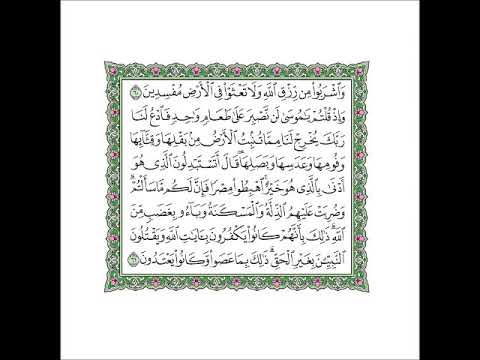 وَاشْرَبُوا مِن رِّزْقِ اللَّهِ وَلَا تَعْثَوْا فِي الْأَرْضِ مُفْسِدِينَ ٦٠
وَإِذْ قُلْتُمْ يَامُوسَىٰ لَن نَّصْبِرَ عَلَىٰ طَعَامٍ وَاحِدٍ فَادْعُ لَنَا
رَبَّكَ يُخْرِجْ لَنَا مِمَّا تُنبِتُ الْأَرْضُ مِن بَقْلِهَا وَقِثَّائِهَا
وَفُومِهَا وَعَدَسِهَا وَبَصَلِهَا ۖ قَالَ أَتَسْتَبْدِلُونَ الَّذِي هُوَ
أَدْنَىٰ بِالَّذِي هُوَ خَيْرٌ ۚ اهْبِطُوا مِصْرًا فَإِنَّ لَكُم مَّا سَأَلْتُمْ ۗ
وَضُرِبَتْ عَلَيْهِمُ الذِّلَّةُ وَالْمَسْكَنَةُ وَبَاءُو بِغَضَبٍ مِّنَ
اللَّهِ ۗ ذَٰلِكَ بِأَنَّهُمْ كَانُوا يَكْفُرُونَ بِآيَاتِ اللَّهِ وَيَقْتُلُونَ
النَّبِيِّينَ بِغَيْرِ الْحَقِّ ۗ ذَٰلِكَ بِمَا عَصَوا وَّكَانُوا يَعْتَدُونَ ٦١